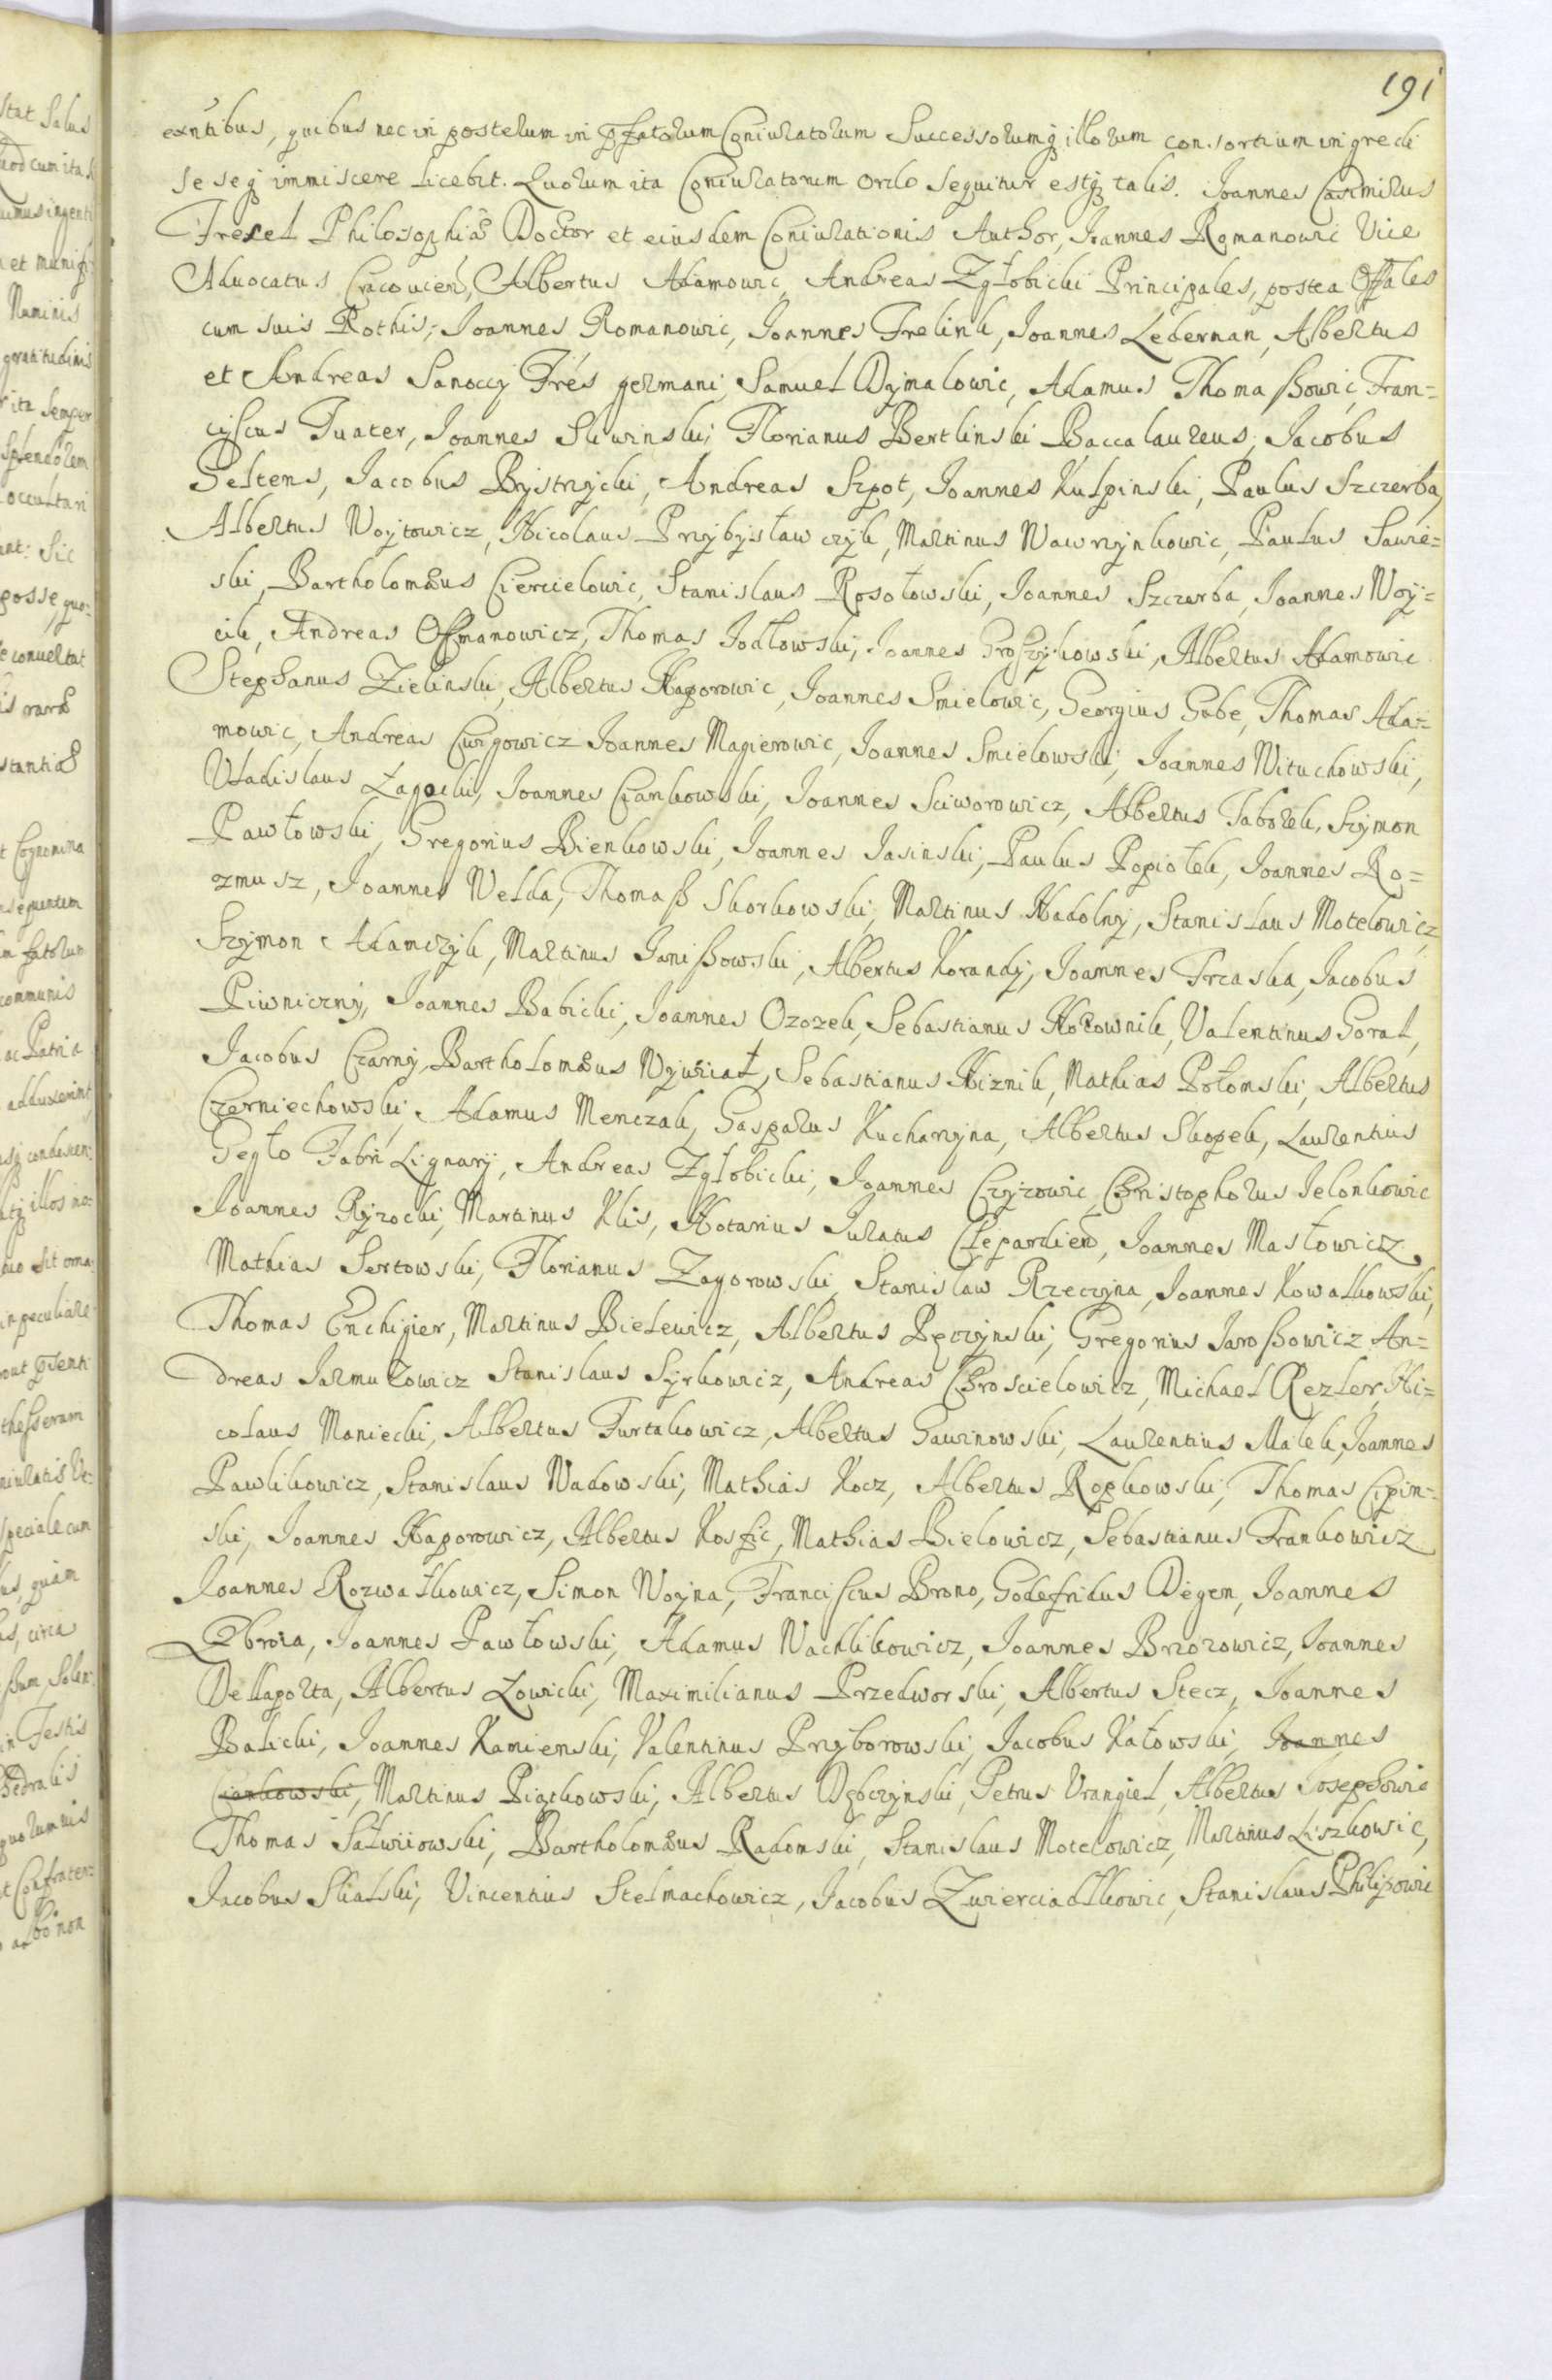 191
exñtibus, quibus nec in posterum in pfatorum Coniuratorum Successorumq illorum consortium ingredi
seseq immiscere licebit. Quorum ita Coniuratorum ordo sequitur estq talis. Joannes Casimirus
Frexel Philosophiæ Doctor et eiusdem Coniurationis Author, Joannes Romanowic Vice
Advocatus Cracovień, Albertus Adamowic, Andreas Zgłobicki Principales, postea Offales
cum suis Rothis; Joannes Romanowic, Joannes Frelink, Joannes Lederman, Albertus
et Andreas Sanoccy Frés germani, Samuel Dymalowic, Adamus Thomaßowic, Fran=
ciscus Fuater, Joannes Sliwinski, Florianus Bertlinski Baccalaureus, Jacobus
Peltens, Jacobus Bystrzycki, Andreas Szpot, Joannes Kulpinski, Paulus Szczerba,
Albertus Woytowicz, Nicolaus Przybysław czyk, Martinus Wawrzynkowic, Paulus Sawic=
ski, Bartholomæus Cierciclowic, Stanislaus Rosołowski, Joannes Szczerba, Joannes Woy=
cik, Andreas Offmanowicz, Thomas Jodłowski, Joannes Groszykowski, Albertus Adamowic
Stephanus Zielinski, Albertus Naporowic, Joannes Smielowic, Georgius Gobe, Thomas Ada=
mowic, Andreas Curgowicz Joannes Magierowic, Joannes Smielowski, Joannes Wituchowski,
Vladislaus Łagocki, Joannes Ciankowski, Joannes Sciworowicz, Albertus Taborek, Szymon
Pawłowski, Gregorius Bienkowski, Joannes Jasinski, Paulus Popiołek, Joannes Ro=
zmusz, Joannes Welda, Thomaß Skorkowski, Martinus Nadolny, Stanislaus Motelowicz,
Szymon Adamczyk, Martinus Janißowski, Albertus Korandy, Joannes Trcaska, Jacobus
Piwniczny, Joannes Babicki, Joannes Ozozek, Sebastianus Nożownik, Valentinus Goral,
Jacobus Czarny, Bartholomæus Wywiał, Sebastianus Niznik, Mathias Połomski, Albertus
Czerniechowski, Adamus Menczak, Gasparus Kucharzyna, Albertus Skopek, Laurentius
Gegło Fabrí Lignarij, Andreas Zgłobicki, Joannes Czyzowic, Christophorus Jelonkowic
Joannes Ryzocki, Martinus Klis, Notarius Juratus Clepardień, Joannes Masłowicz,
Mathias Sertowski, Florianus Zagorowski, Stanislaw Rzeczyna, Joannes Kowalkowski,
Thomas Enchigier, Martinus Bielewicz, Albertus Pęczynski, Gregorius Jaroßowicz An=
dreas Jarmużowicz Stanislaus Syrkowicz, Andreas Chroscielowicz, Michael Rezler, Ni=
colaus Maniecki, Albertus Furtakowicz, Albertus Gawinowski, Laurentius Małek, Joannes
Pawlikowicz, Stanislaus Wadowski, Mathias Kocz, Albertus Ropkowski, Thomas Cipin=
ski, Joannes Naporowicz, Albertus Kosfic, Mathias Bielowicz, Sebastianus Frankowicz
Joannes Rozwałkowicz, Simon Woyna, Franciscus Brono, Godefridus Degen, Joannes
Zbroia, Joannes Pawłowski, Adamus Wachlikowicz, Joannes Brzozowicz, Joannes
Dellaporta, Albertus Łowicki, Maximilianus Przedworski, Albertus Stecz, Joannes
Balicki, Joannes Kamienski, Valentinus Przyborowski, Jacobus Kałowski, Joannes
Ciankowski, Martinus Piątkowski, Albertus Dębczynski, Petrus Vrangiel, Albertus Josephowic
Thomas Salwiiowski, Bartholomæus Radomski, Stanislaus Motelowicz, Martinus Liszkowic,
Jacobus Skalski, Vincentius Stelmachowicz, Jacobus Zwierciadłkowic, Stanislaus Philipowic